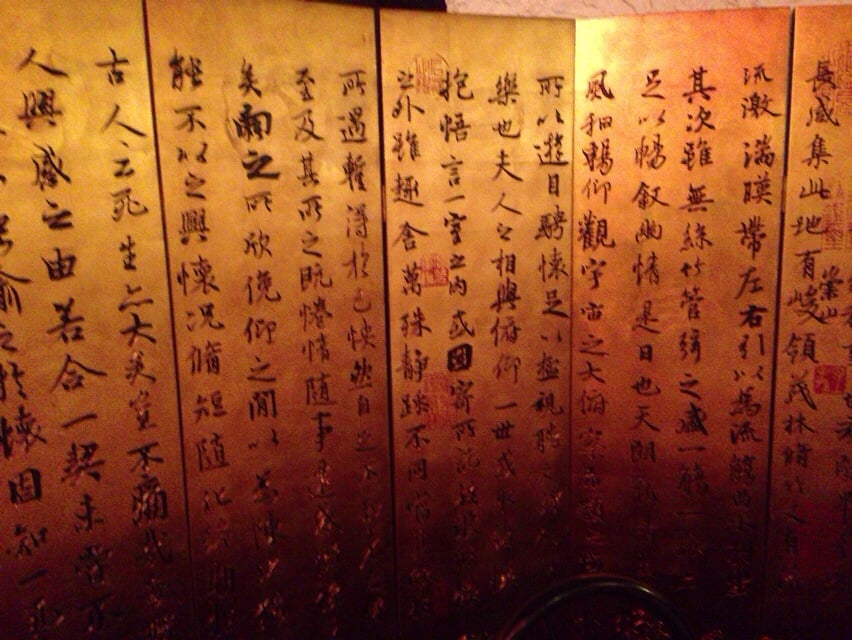 長咸集此地有峻領茂林脩竹又有
崇山
流激湍暎帶左右引以為流觴曲水列坐
其次雖無絲竹管弦之盛一觴一
足以暢叙幽情是日也天朗氣
風和暢仰觀宇宙之大俯察品類之盛
所以遊目騁懷足以極視聽之
樂也夫人之相與俯仰一世或取
抱悟言一室之內或因寄所託放浪
之外雖趣舍萬殊靜躁不同當
所遇蹔得於己怏然自足不
至及其所之既惓情隨事遷感
矣向之所欣俛仰之閒以為陳迹
能不以之興懷況脩短隨化終期
古人云死生亦大矣豈不痛哉
人興感之由若合一契未嘗不
喻之於懷固知一死